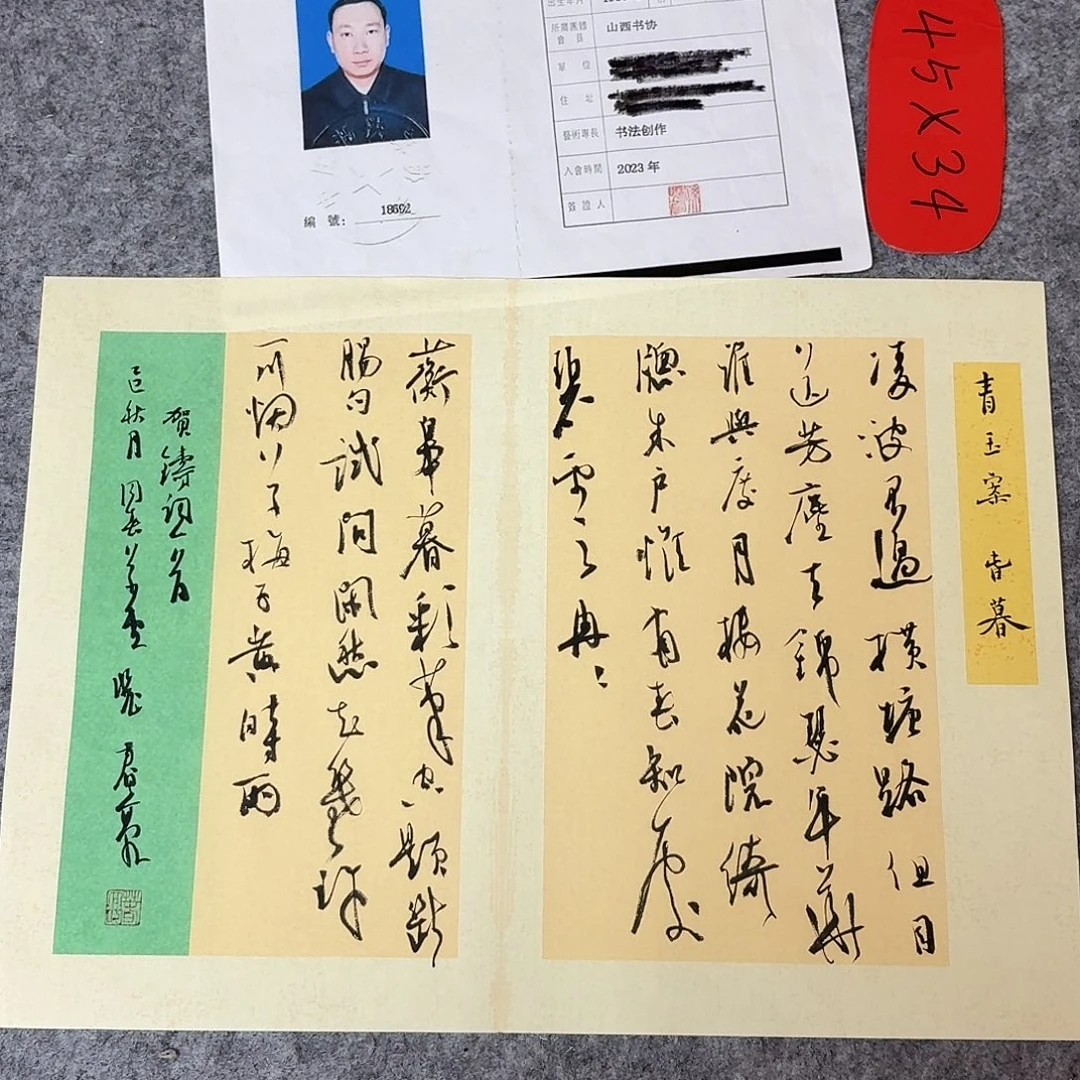 出生年月
所屬團體會員 山西书协
單位
住址
藝術專長 书法创作
入會時間 2023 年
簽證人
編號:
45×34
青玉案 春暮
凌波不過橫塘路但目
送芳塵去錦瑟年華
誰與度月橋花院綺
牕朱户惟有春知處
碧雲冉〻
蘅皋暮彩筆空題斷
腸句試問閑愁幾許
一川烟草梅子黄時雨
賀鑄詞一首
秋月